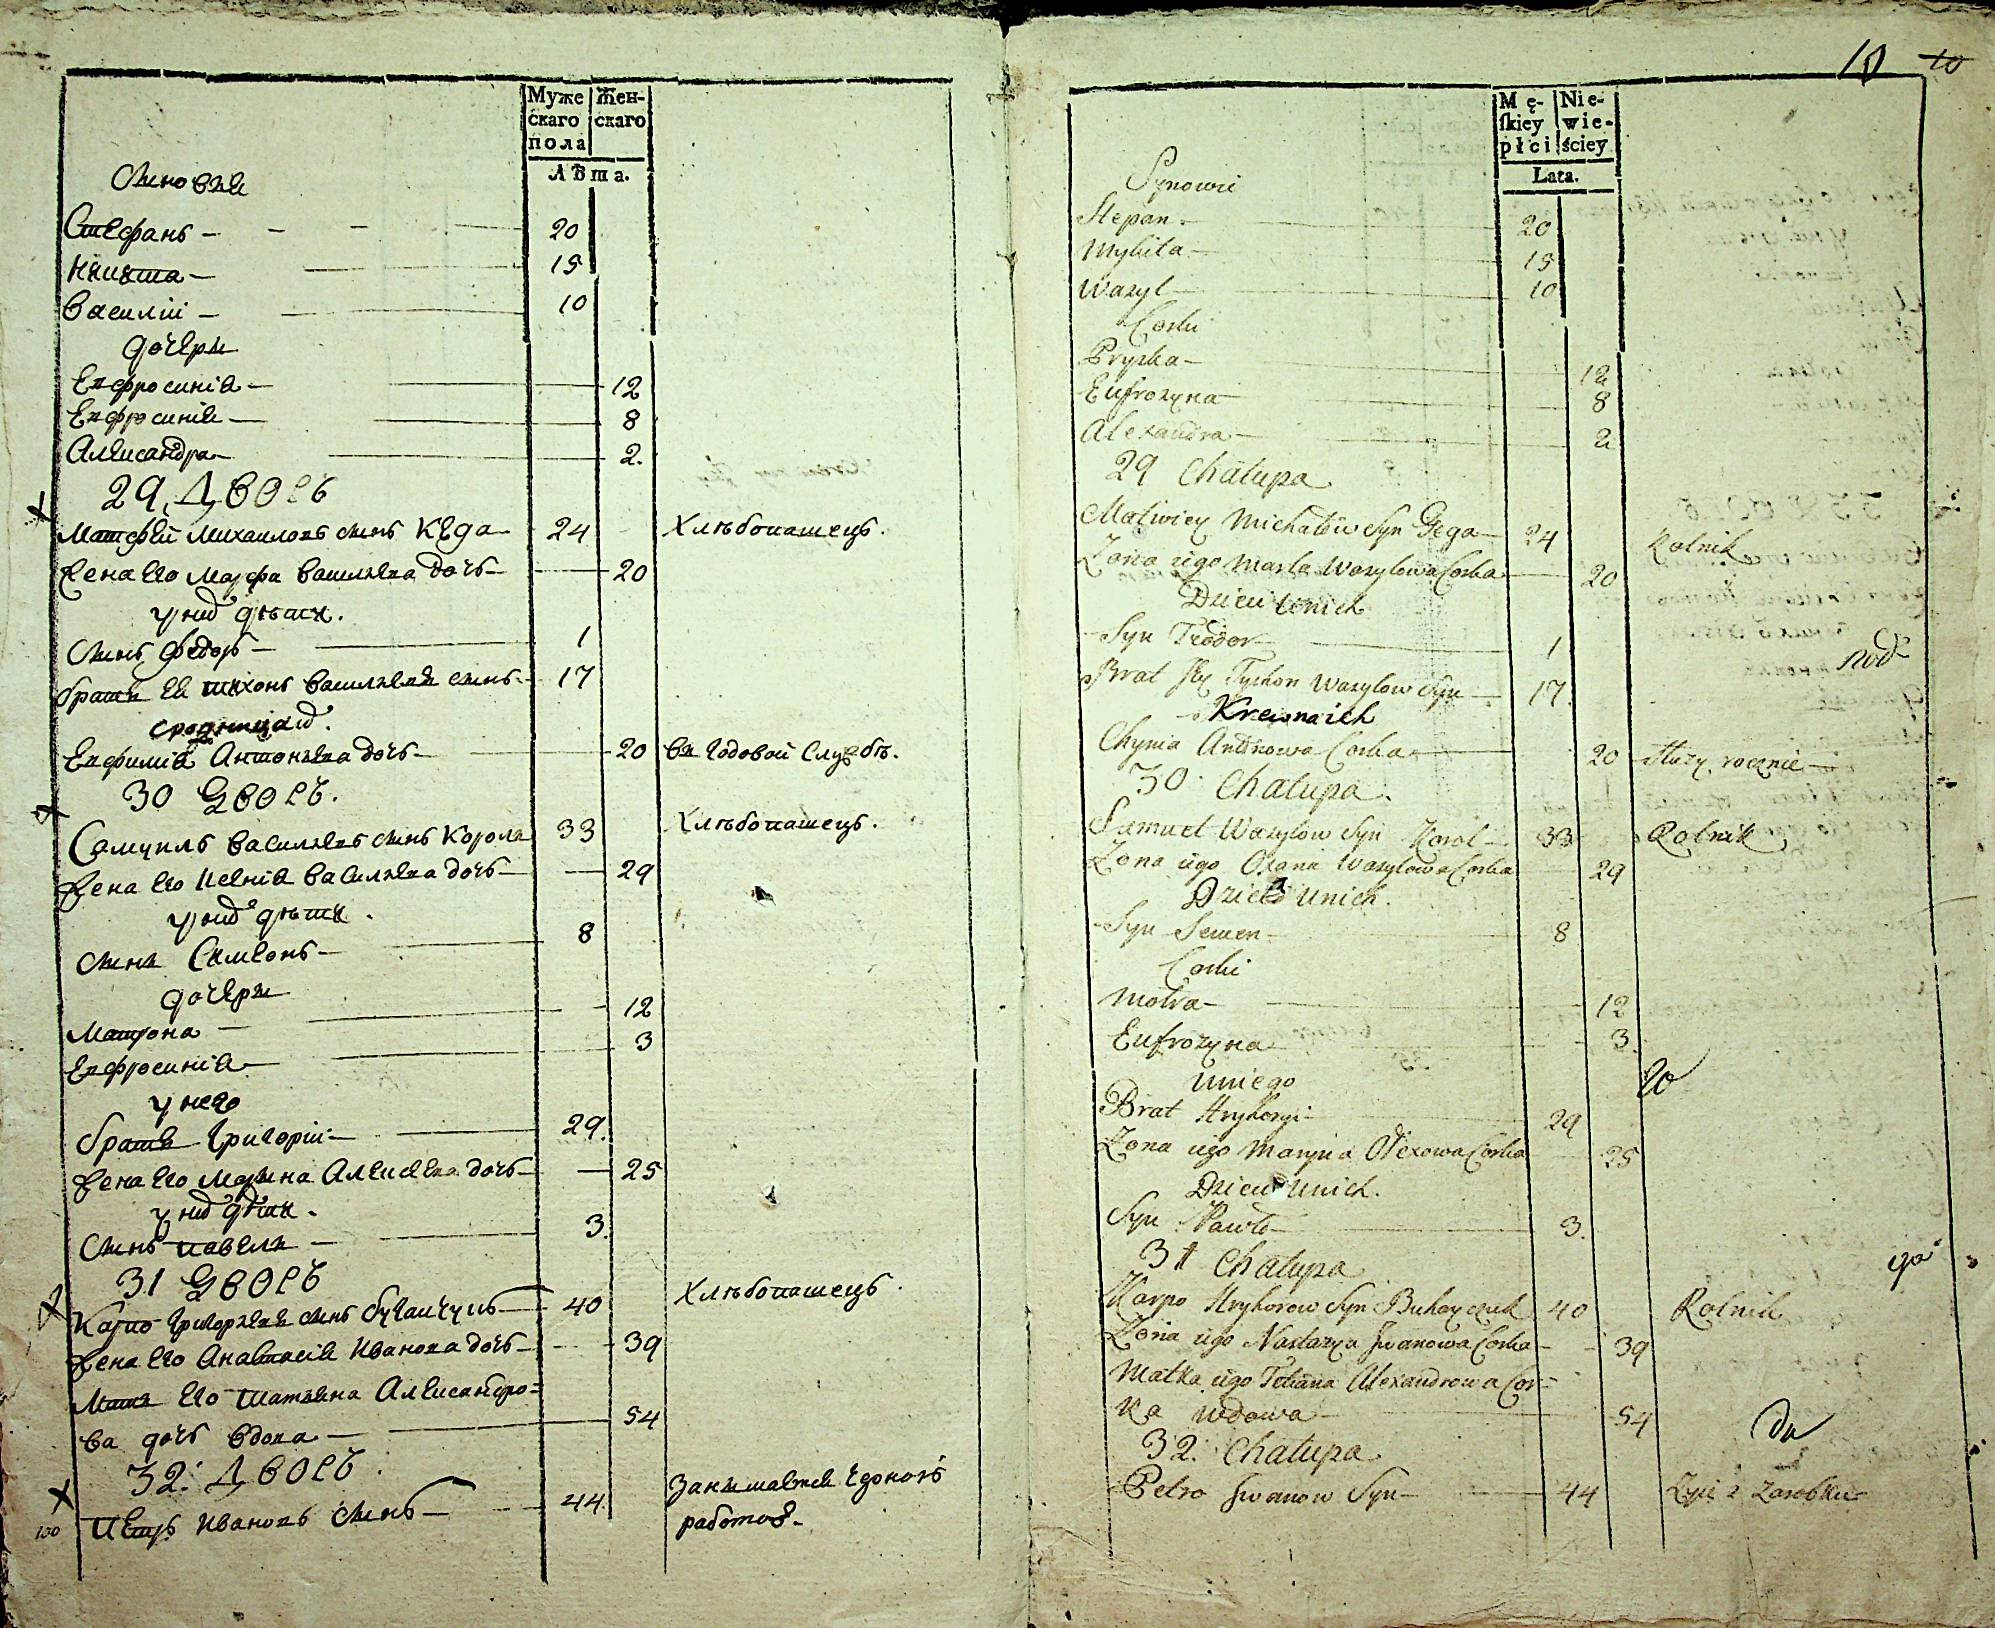 Муже
скаго
пола
Жен-
скаго
Лѣта.
Синовья
Стефанъ — 20
Никита — 15
Василій — 10
дочери
Евфросинія — 12
Евфросинія — 8
Александра — 2.
29. Дворъ
Матфей Михаиловъ синъ Кеда — 24 Хлѣбопашецъ.
Жена его Марфа Васильева дочь — 20
у них дѣти.
Синъ Федоръ — 1
братъ ей Тихонъ Васильевъ синъ — 17
сродницаи.
Евфимія Антоньева дочь — 20 въ годовой службѣ.
30 Дворъ.
Самуилъ Васильевъ синъ Король 33 Хлѣбопашецъ.
Жена его Ксенія Васильева дочь — 29
у них дѣти.
синъ Симеонъ — 8
дочери
Матрона — 12
Евфросинія — 3
у него
братъ Григорій — 29.
Жена его Марина Алексѣева дочь — 25
у них дѣти.
Синъ Павелъ — 3.
31 Дворъ
Карпо Григорьевъ синъ Бугайчукъ — 40 Хлѣбопашецъ.
Жена его Анастасія Иванова дочь — 39
Мать его Татьяна Александро=
ва дочь вдова — 54
32. Дворъ.
100 Петръ Ивановъ синъ — 44 Занимается едною
работою.
10 10
Mę-
skiey
płci
Nie-
wie-
ściey
Lata.
Synowie
Stepan — 20
Mykita — 15
Wasyl — 10
Corki
Pryska — 12
Eufrozyna — 8
Alexandra — 2
29 Chałupa
Matwiey Michałow Syn Gega — 24 Rolnik
Zona iego Marta Wasylowa Corka 20
Dzieci Unich
Syn Teodor — 1
Brat Jey Tychon Wasylow Syn — 17.
Krewna ich
Chymia Antonowa Corka — 20 Służy rocznie —
30. Chałupa.
Samuel Wasylow Syn Korol — 33 Rolnik
Zona iego Oxana Wasylowa Corka 29
Dzieci Unich.
Syn Semen — 8
Corki
Motra — 12
Eufrozyna — 3.
Uniego
Brat Hryhoryi — 29
Zona iego Maryna Olexowa Corka 25
Dzieci Unich.
Syn Paweł — 3.
31 Chałupa
Karpo Hryhorow Syn Buhayczuk 40 Rolnik
Zona iego Nastazya Jwanowa Corka — 39
Matka iego Tetiana Alexandrowa Cor=
ka wdowa — 54
32. Chałupa
Petro Jwanow Syn — 44 Zyie z Zarobku